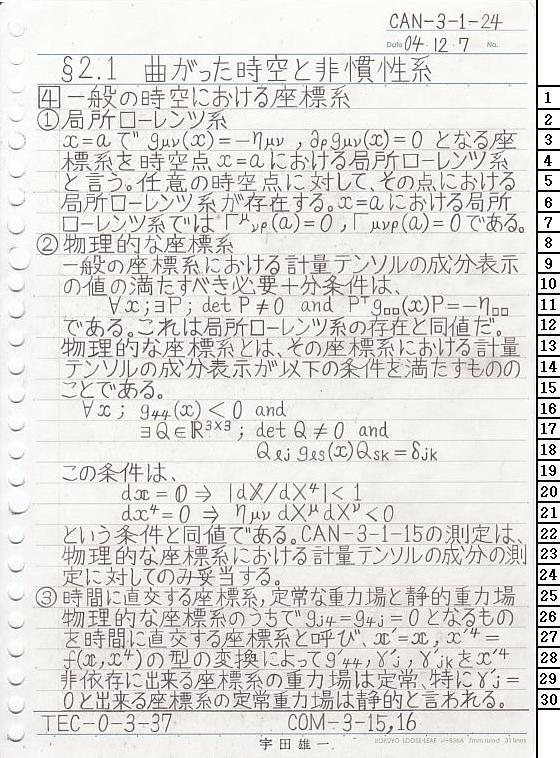 CAN-3-1-24
Date 04・12・7 No.
§2.1 曲がった時空と非慣性系
4 一般の時空における座標系
①局所ローレンツ系
x=aで gμν(x)=-ημν , ∂ρgμν(x)=0 となる座
標系を時空点x=aにおける局所ローレンツ系
と言う。任意の時空点に対して、その点における
局所ローレンツ系が存在する。x=aにおける局所
ローレンツ系では Γ^μ_νρ(a)=0 , Γμνρ(a)=0である。
②物理的な座標系
一般の座標系における計量テンソルの成分表示
の値の満たすべき必要十分条件は、
∀x;∃P; det P≠0 and P^T g□□(x)P=-η□□
である。これは局所ローレンツ系の存在と同値だ。
物理的な座標系とは、その座標系における計量
テンソルの成分表示が以下の条件を満たすものの
ことである。
∀x; g44(x)<0 and
∃Q∈ℝ^3×3; det Q≠0 and
Qℓj gℓs(x)Qsk=δjk
この条件は、
dx=0 ⇒ |dX/dX^4|<1
dx^4=0 ⇒ ημν dX^μ dX^ν<0
という条件と同値である。CAN-3-1-15の測定は、
物理的な座標系における計量テンソルの成分の測
定に対してのみ妥当する。
③時間に直交する座標系,定常な重力場と静的重力場
物理的な座標系のうちで gj4=g4j=0 となるもの
を時間に直交する座標系と呼び、x'=x, x'^4=
f(x,x^4)の型の変換によってg'44,γ'j,γ'jkをx'^4
非依存に出来る座標系の重力場は定常、特にγ'j=
0と出来る座標系の定常重力場は静的と言われる。
TEC-0-3-37 COM-3-15,16
宇田雄一
KOKUYO LOOSE-LEAF ノ-836A 7mm ruled 31 lines
1
2
3
4
5
6
7
8
9
10
11
12
13
14
15
16
17
18
19
20
21
22
23
24
25
26
27
28
29
30